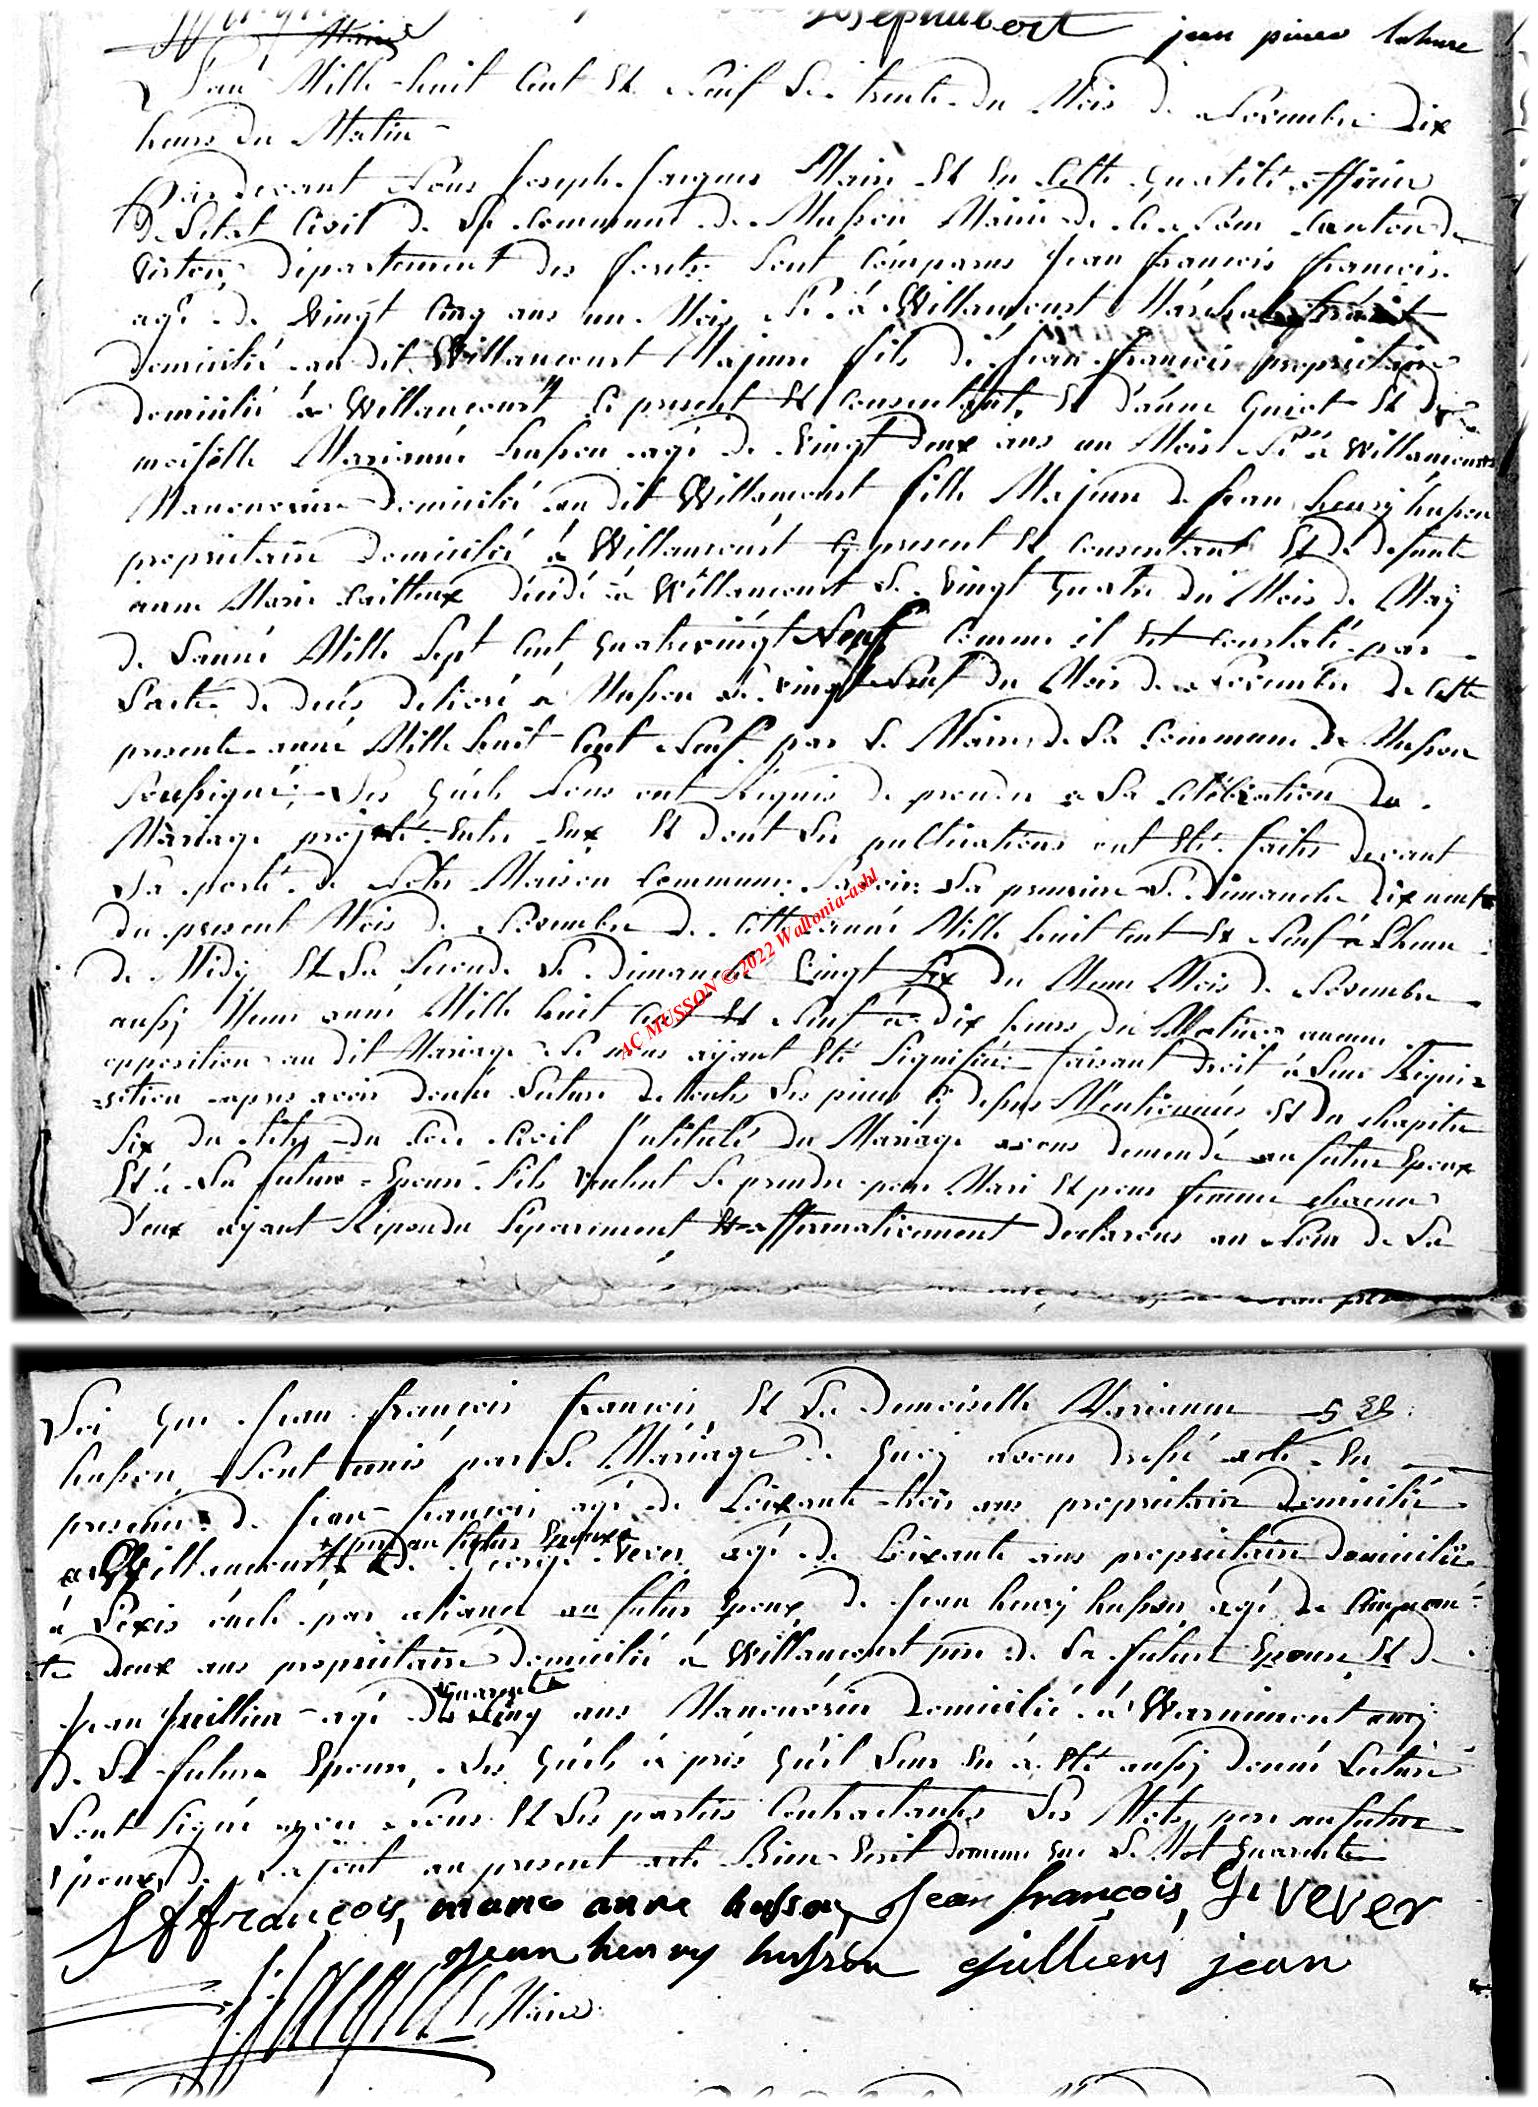 Maire josephubert jean pierre lahure
L'an Mille huit Cent Et Neuf Le trente du Mois de Novembre Dix
heures du Matin
Pardevant Nous Joseph Jacques Maire Et En Cette Qualité officier
de L'etat Civil de La Commune de Musson Mairie de Ce Nom Canton de
Virton, departement des forets: Sont Comparus Jean françois françois
agé de Vingt Cinq ans un Mois Né à Willancourt Marchal
domicilié au dit Willancourt Majeure fils de Jean françois proprietaire
domicilié à Willancourt Cy present Et Consentant, Et d'anne Guiot Et De
moiselle Marianne husson agé de Vingt Deux ans un Mois Né à Willancourt
Manouvrier Domicilié au dit Willancourt fille Majeure de Jean henry husson
proprietaire Domicilié à Willancourt Cy present Et Consentant Et de defunte
anne Marie Cailteux décédé à Willancourt Le Vingt Quatre du Mois de May
de L'année Mille Sept Cent Quatrevingt Neuf Comme il Est Constaté par
L'acte de decés delivré à Musson Le vingt Neuf du Mois de Novembre De Cette
presente année Mille huit Cent Neuf par Le Maire de La Commune De Musson
Soussigné; Les Quels Nous ont Requis de proceder a La Celébration du
Mariage projeté Entre Eux Et dont Les publications ont Eté faites devant
La porte de Notre Maison Commune Savoir La premiere Le Dimanche Dix neuf
du present Mois de Novembre de Cette année Mille huit Cent Et Neuf à L'heure
de Midy Et La Seconde Le dimanche Vingt Six du Meme Mois de Novembre
aussy Meme année Mille huit Cent Et Neuf à dix heures du Matin aucune
opposition au dit Mariage Ne nous ayant Eté Signifiée faisant droit à Leur Requi=
=sition apres avoir donné Lecture de toutes Les pieces Cy dessus Mentionnées Et Du chapitre
Six du titre du Code Civil Intitulé du Mariage avons demandé au futur Epoux
Et à La future Epouse S'ils veulent Se prendre pour Mari Et pour femme chacun
d'eux ayant Répondu Separement Et affirmativement declarons au Nom de La
Loi Que Jean françois françois, Et La Demoiselle Marianne
husson, Sont unis par Le Mariage De Quoy avons dressé acte En
presence de Jean françois agé de Soixante trois ans proprietaire Domicilié
à Willancourt pere au futur Epoux Et De Vever agé de Soixante ans proprietaire Domicilié
à par aliance au futur Epoux, de Jean henry husson agé de Cinquan=
te Deux ans proprietaire Domicilié à Willancourt pere de La future Epouse, Et de
Jean Juillien agé de quarante Cinq ans Manouvrier Domicilié à Warnimont amy
De La future Epouse, Les Quels à prés Qu'il Leur En à Eté aussy Donné Lecture
Sont Signé avec Nous Et Les parties Contractantes Les Mots pere au futur
Epoux, De au present acte Bien Ecrit Comme Le Mot Quarante
J f françois, marie anne husson, Jean françois, G. vever
Jean henry husson Julliens jean
Maire
AC MUSSON © 2022 Wallonia-asbl